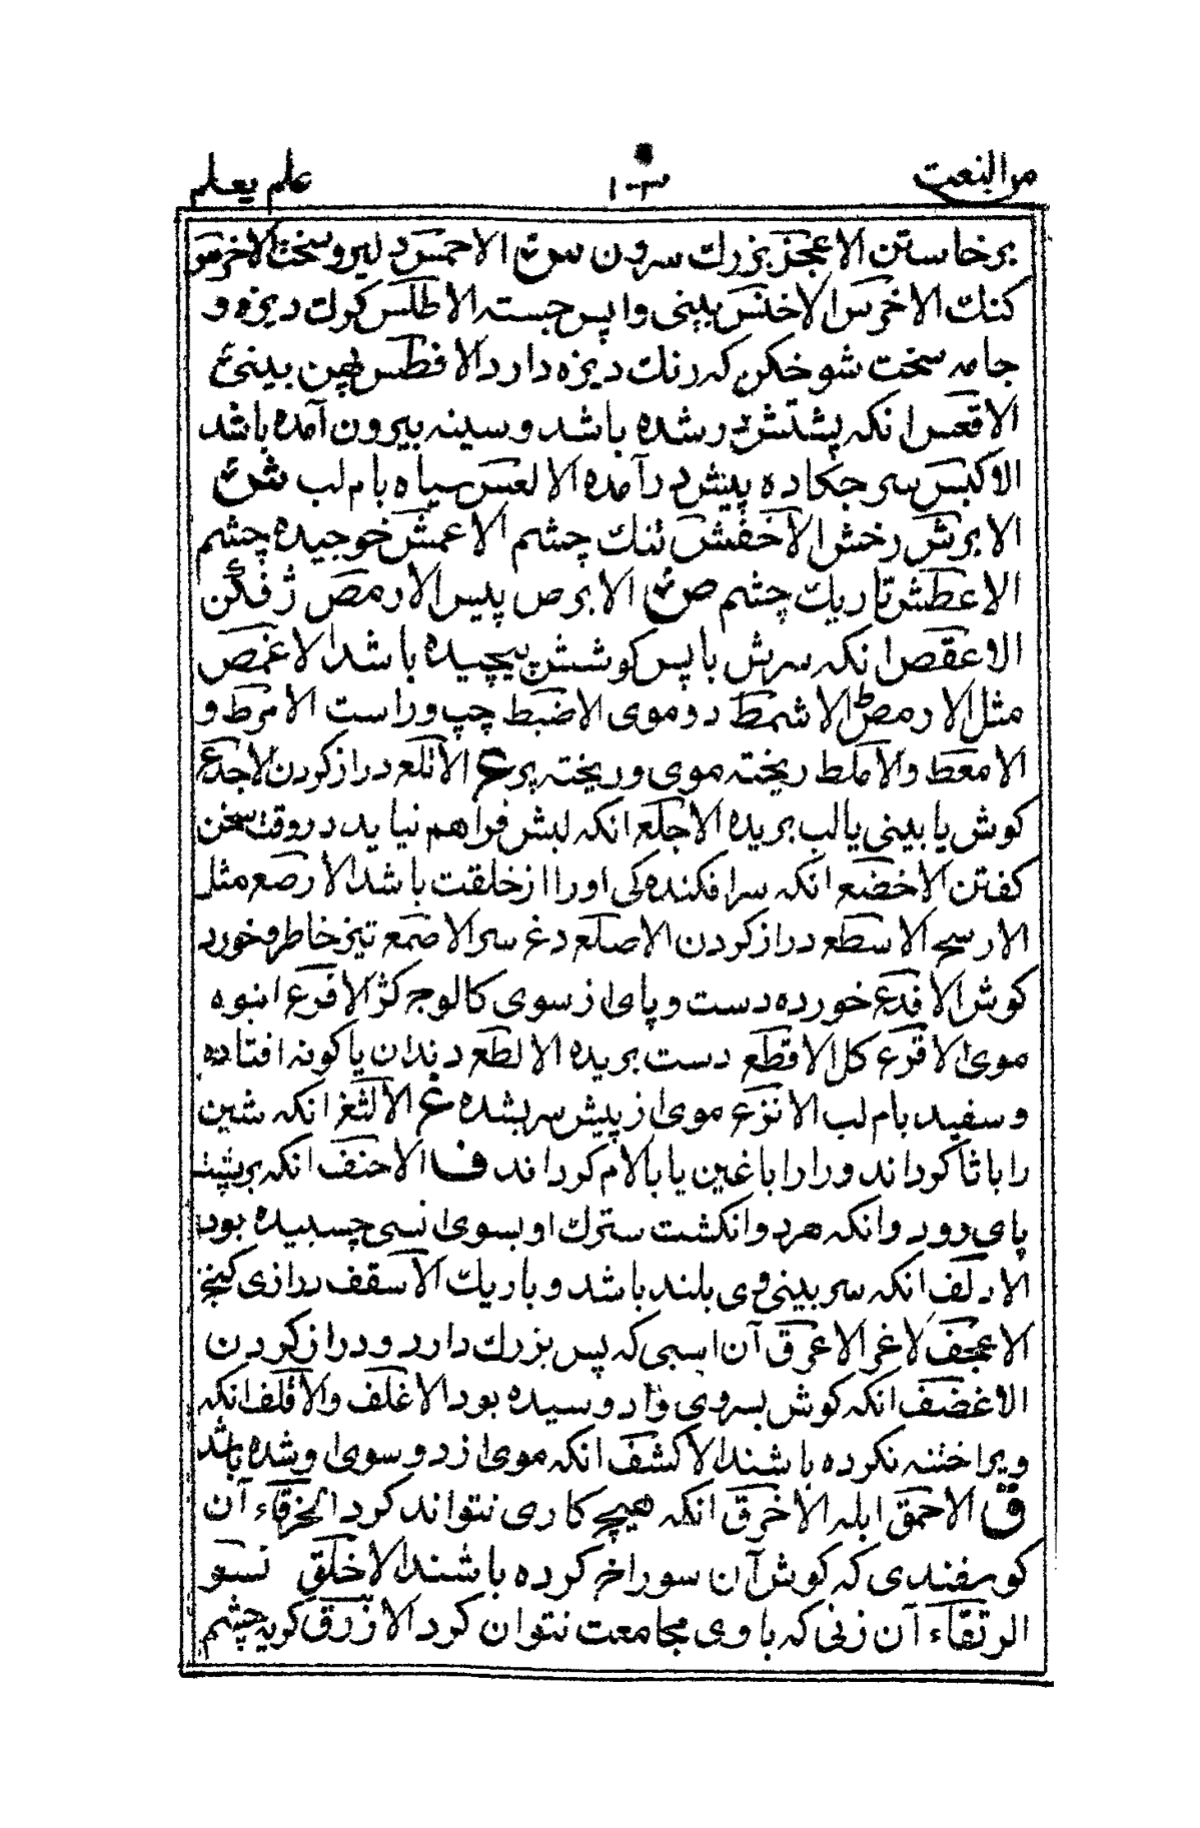 من النعت ۱۰۳ علم يعلم
برخاستن الاعجز بزرك سرون س الاحمس دلیر و سخت الاخرس
کنك الاخرس الاخنس بینی واپس جسته الاطلس کرك دیزه و
جامه سخت شوخکن که رنك دیزه دارد الافطس پهن بینی
الاقعس انکه پشتش در شده باشد و سینه بیرون آمده باشد
الاکبس سر جکاده پیش درآمده الالعس سیاه بام لب ش
الابرش رخش الاخفش تنك چشم الاعمش خوجیده چشم
الاعطش تاریك چشم ص الابرص پیس الارمص ژفکن
الاعقص انکه سرش باپس کوشش پیچیده باشد الاغمص
مثل الارمص الاشمط دو موی الاضبط چپ و راست الامرط و
الامعط والاملط ریخته موی و ریخته پر ع الاتلع دراز کردن الاجدع
کوش یا بینی یا لب بریده الاجلع انکه لبش فراهم نیاید در وقت سخن
کفتن الاخضع انکه سرافکنده کی او را از خلقت باشد الارصع مثل
الارسح الاسطع دراز کردن الاصلع دغ سر الاصمع تیز خاطر و خورد
کوش الافدع خورده دست و پای از سوی کالوج کژ الافرع انبوه
موی الاقرع کل الاقطع دست بریده الالطع دندان یا کونه افتاده
و سفید بام لب الانزع موی از پیش سر بشده غ الالثغ انکه شین
را با ثا کرداند و را را با غین یا بالام کرداند ف الاحنف انکه بر پشت
پای رود و انکه هر دو انکشت سترك او بسوی انسی چسبیده بود
الادلف انکه سر بینی وی بلند باشد و باریك الاسقف درازی کنج
الاعجف لاغر الاعرق آن اسبی که پس بزرك دارد و دراز کردن
الاغضف انکه کوش بسروی وادوسیده بود الاغلف والاقلف انکه
ویرا ختنه نکرده باشند الاکشف انکه موی از دو سوی او شده باشد
ق الاحمق ابله الاخرق انکه هیچ کاری نتواند کرد الخرقاء آن
کوسفندی که کوش آن سوراخ کرده باشند الاخلق نسو
الرتقاء آن زنی که با وی مجامعت نتوان کرد الازرق کربه چشم